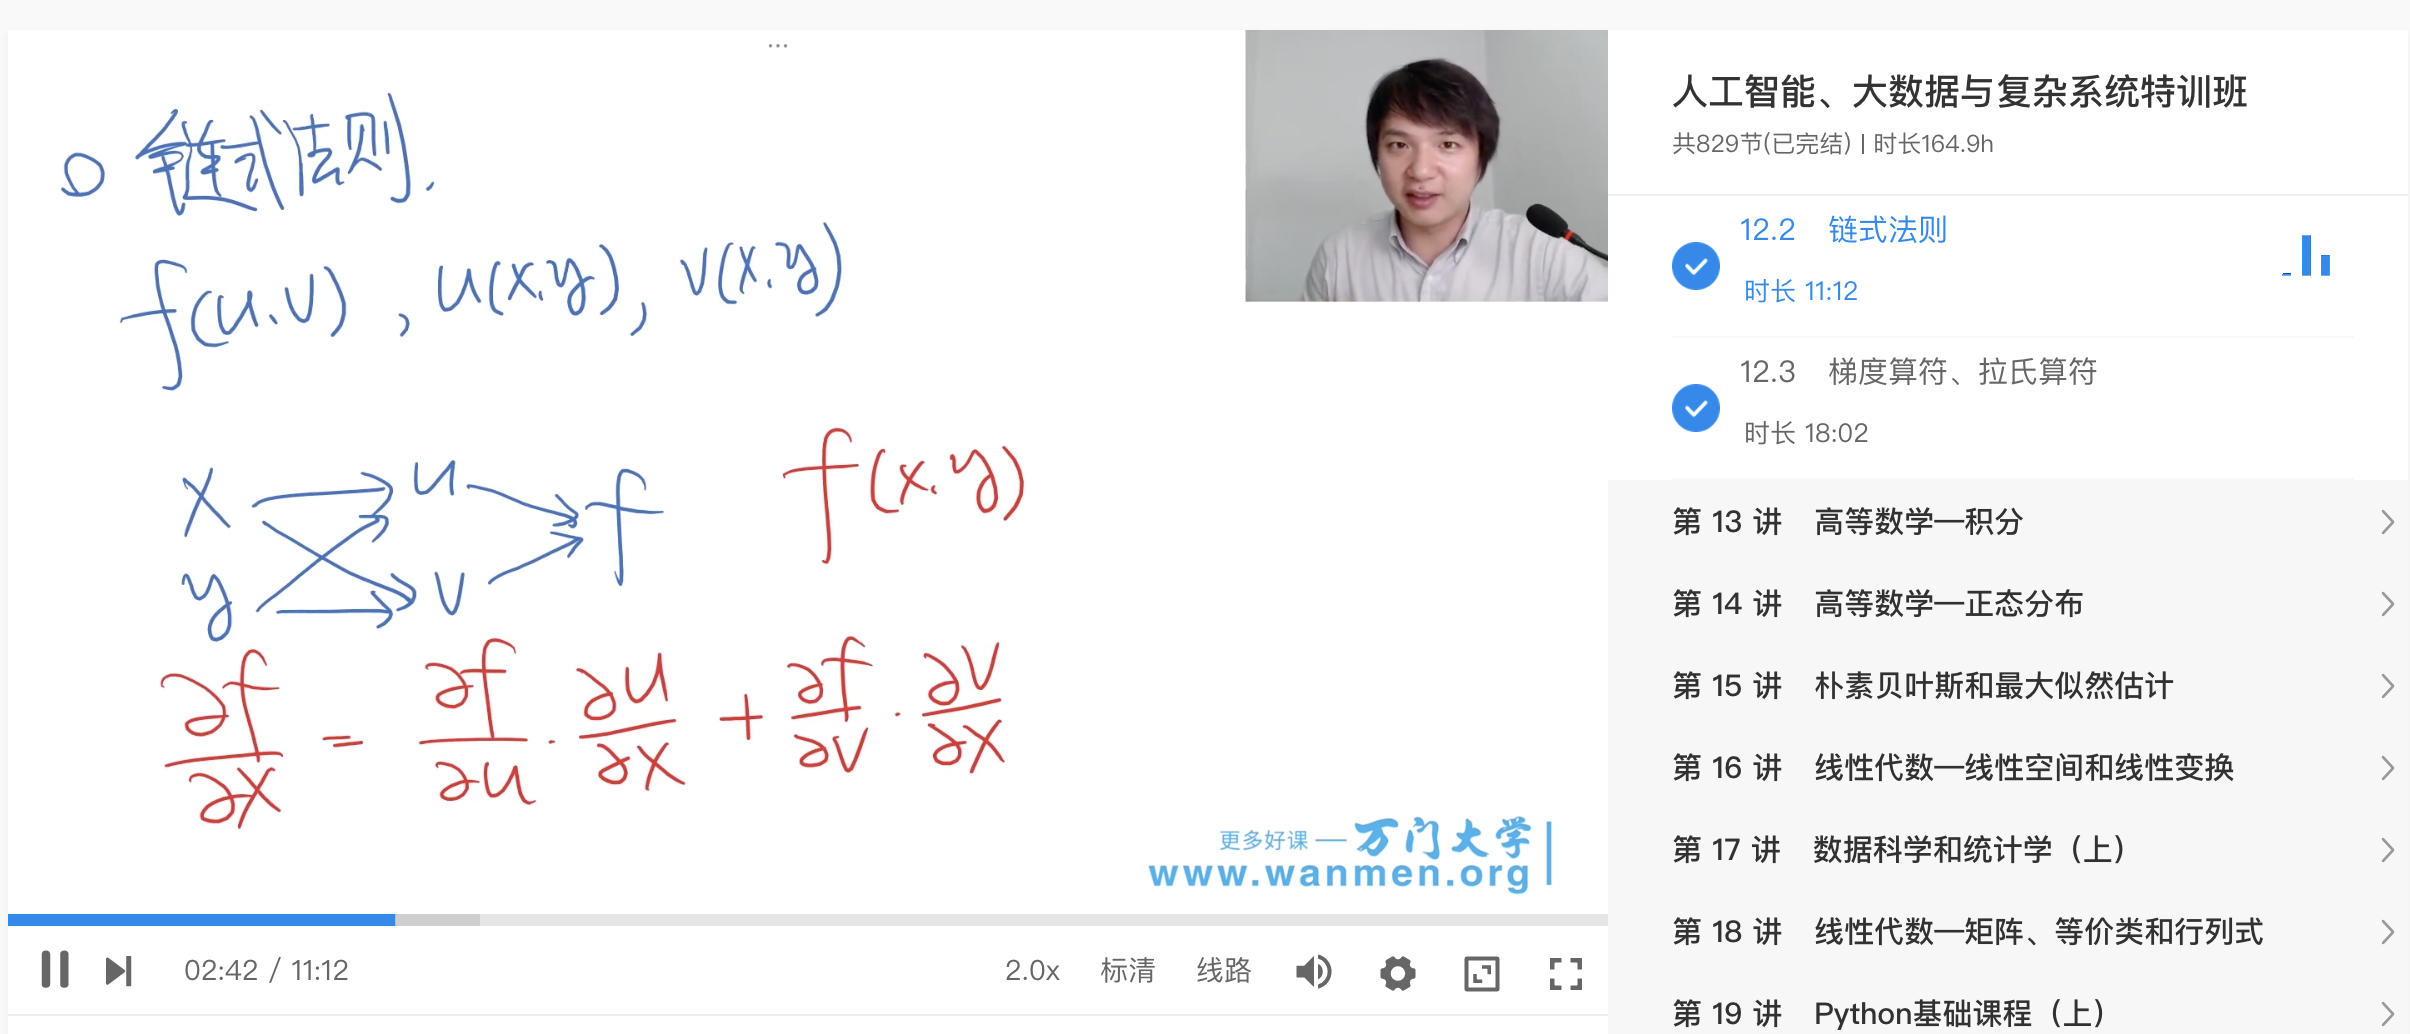 ...
○ 链式法则.
f(u,v), u(x,y), v(x,y)
x u f
y v
f(x,y)
∂f/∂x = ∂f/∂u · ∂u/∂x + ∂f/∂v · ∂v/∂x
更多好课 — 万门大学
www.wanmen.org
02:42 / 11:12
2.0x 标清 线路
人工智能、大数据与复杂系统特训班
共829节(已完结) | 时长164.9h
12.2 链式法则
时长 11:12
12.3 梯度算符、拉氏算符
时长 18:02
第 13 讲 高等数学—积分
第 14 讲 高等数学—正态分布
第 15 讲 朴素贝叶斯和最大似然估计
第 16 讲 线性代数—线性空间和线性变换
第 17 讲 数据科学和统计学（上）
第 18 讲 线性代数—矩阵、等价类和行列式
第 19 讲 Python基础课程（上）